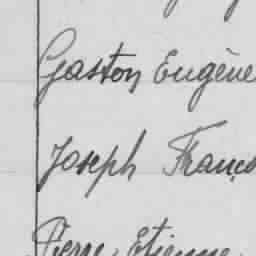 Gaston Eugène
Joseph Franç
Pierre Etienne